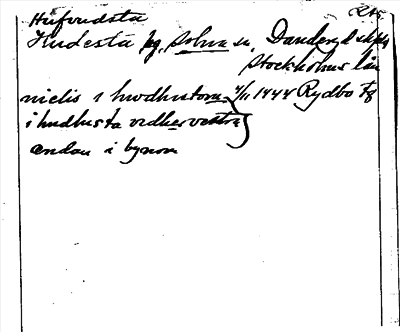 Hufvudsta
Hudesta bg, Solna sn, Danderyds skplg
Stockholms län
nielis i hwdhustom 4/11 1444 Rydbo tg
i hudhusta widher vestra
ændan i bynom